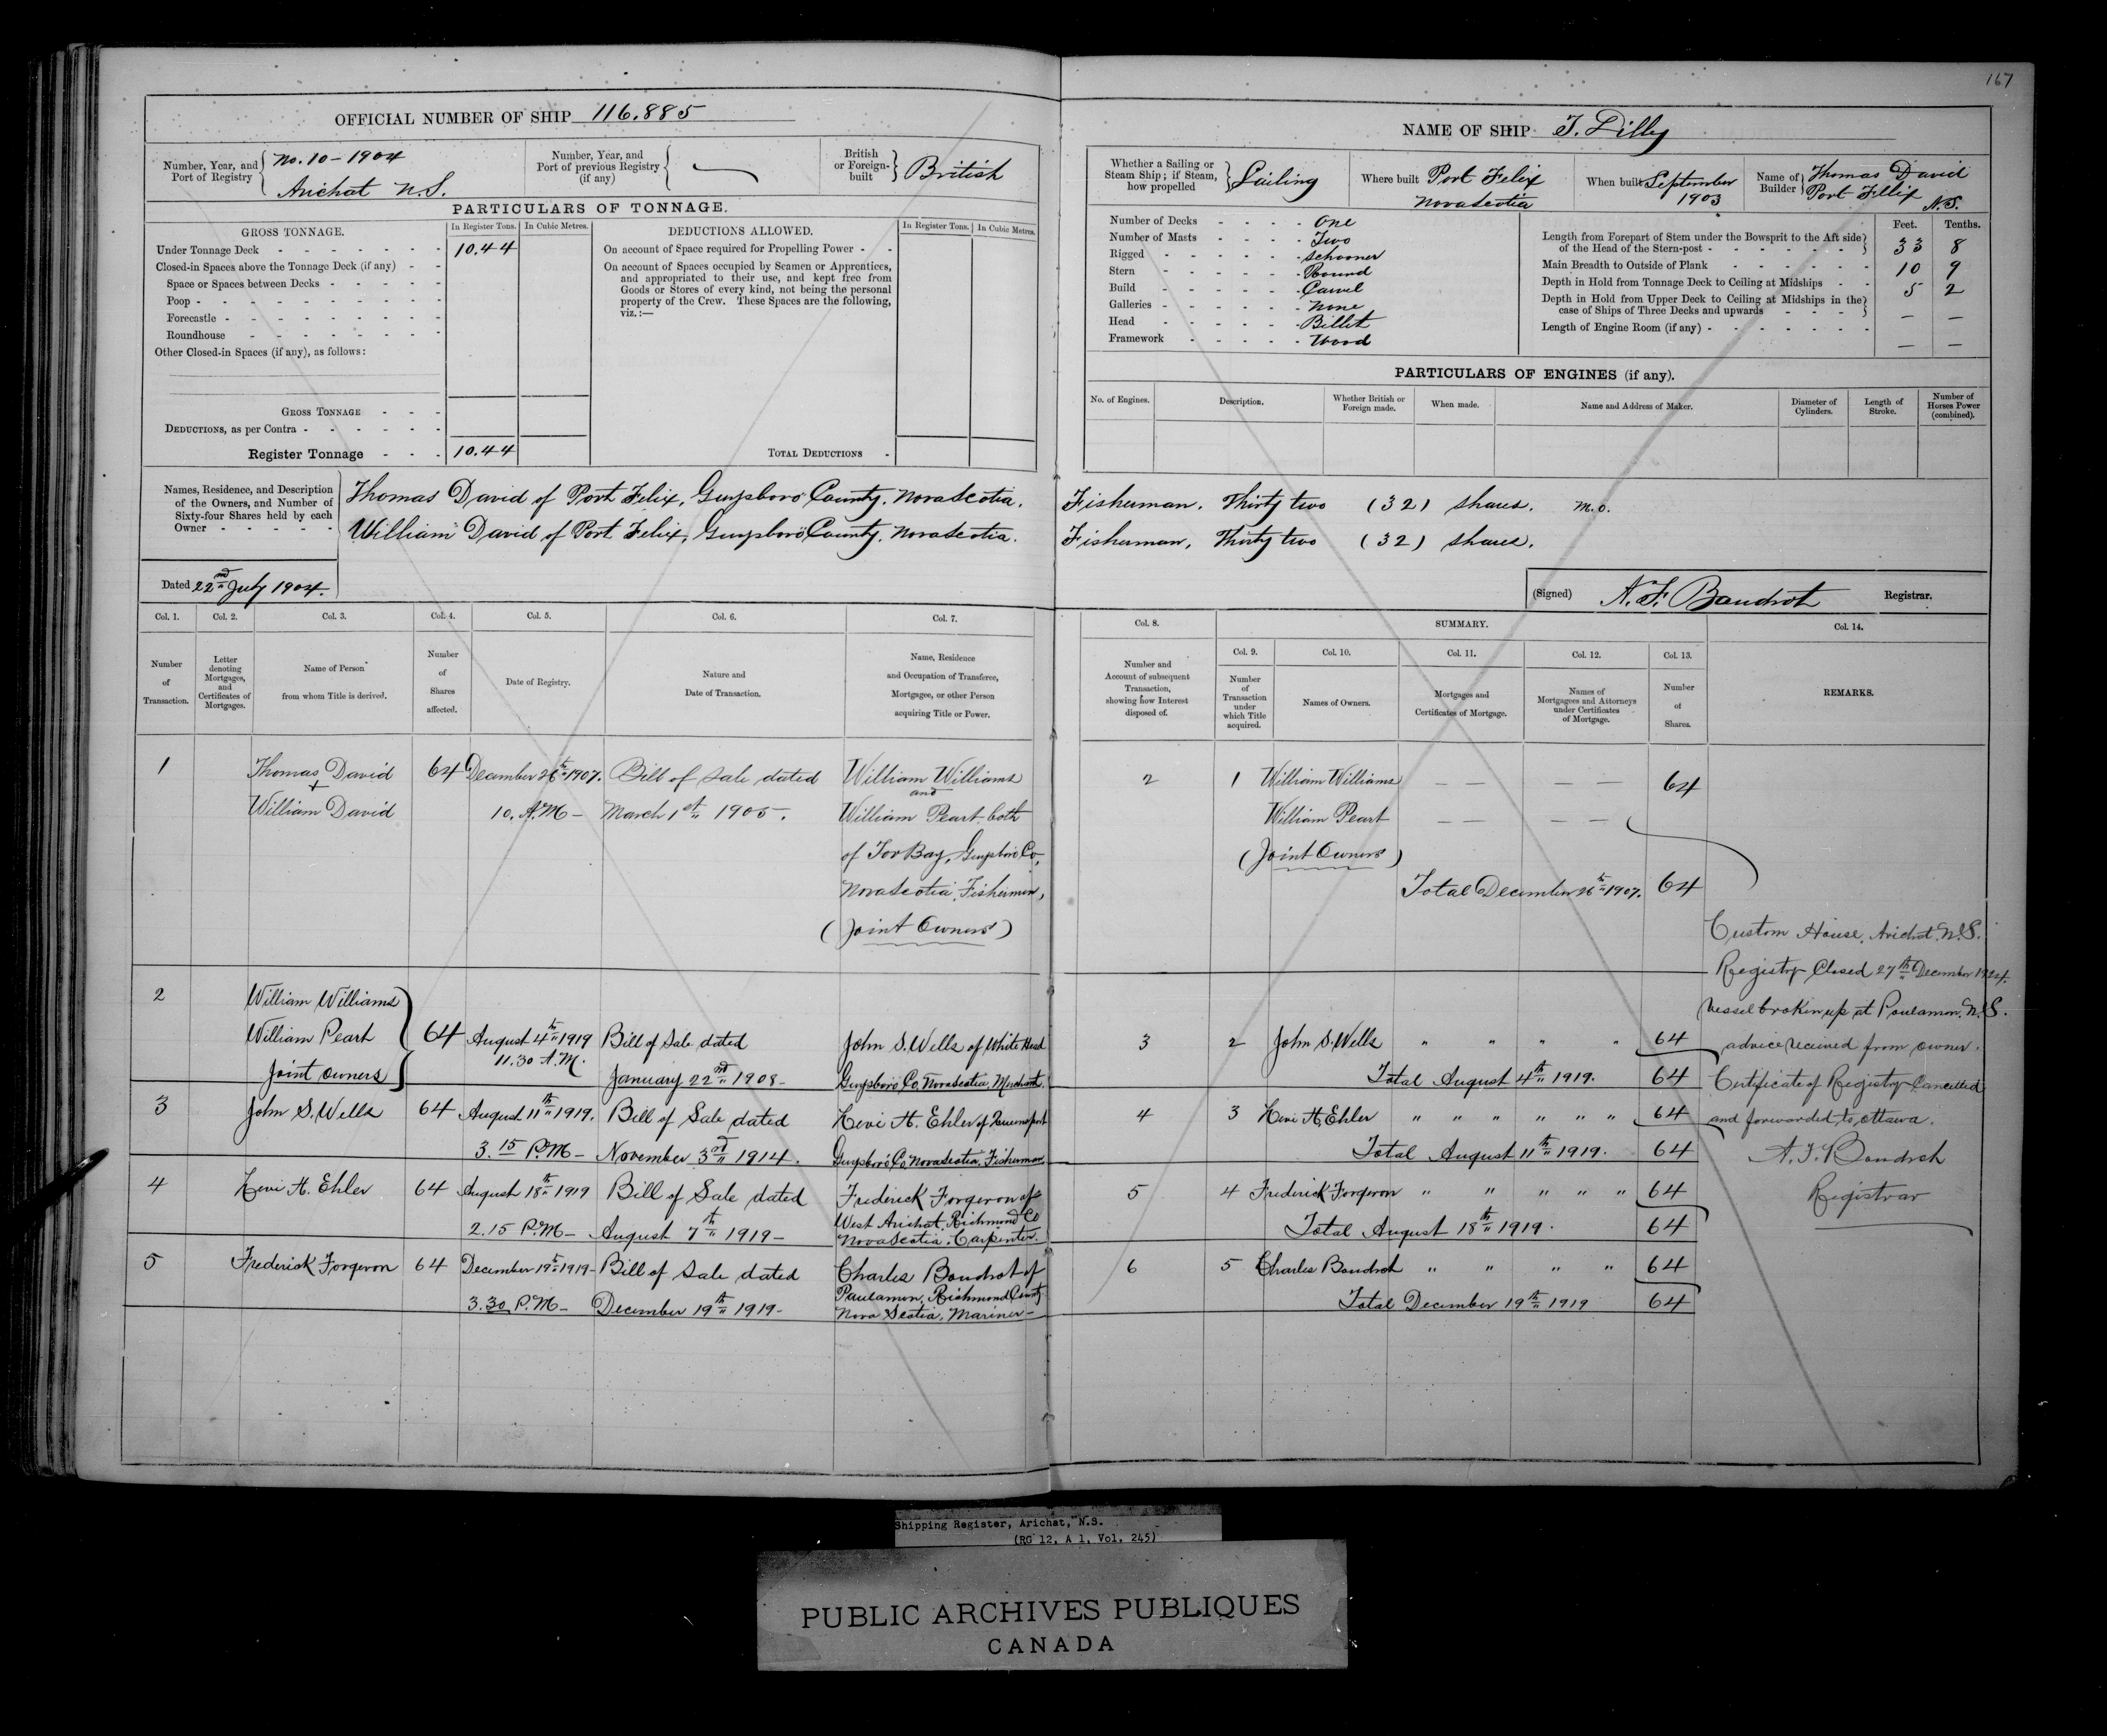 167
OFFICIAL NUMBER OF SHIP 116.885
Number, Year, and Port of Registry { No. 10 - 1904
Arichat N.S.
Number, Year, and Port of previous Registry (if any) {
British or Foreign-built } British
PARTICULARS OF TONNAGE.
GROSS TONNAGE. In Register Tons. In Cubic Metres.
Under Tonnage Deck - 10.44
Closed-in Spaces above the Tonnage Deck (if any) - -
Space or Spaces between Decks - - - - -
Poop - - - - - - - -
Forecastle - - - - - - -
Roundhouse - - - - - -
Other Closed-in Spaces (if any), as follows:
GROSS TONNAGE - - -
DEDUCTIONS, as per Contra - - - - - -
Register Tonnage - - - 10.44
DEDUCTIONS ALLOWED. In Register Tons. In Cubic Metres.
On account of Space required for Propelling Power - -
On account of Spaces occupied by Seamen or Apprentices,
and appropriated to their use, and kept free from
Goods or Stores of every kind, not being the personal
property of the Crew. These Spaces are the following,
viz.:—
TOTAL DEDUCTIONS -
NAME OF SHIP T. Lilly
Whether a Sailing or Steam Ship; if Steam, how propelled } Sailing
Where built Port Felix
Nova Scotia
When built September
1903
Name of Builder } Thomas David
Port Fillix
N.S.
Number of Decks - - - - One
Number of Masts - - - - Two
Rigged - - - - - Schooner
Stern - - - - - Round
Build - - - - - Carvel
Galleries - - - - - None
Head - - - - - Billet
Framework - - - - - Wood
Feet. Tenths.
Length from Forepart of Stem under the Bowsprit to the Aft side
of the Head of the Stern-post - - - - - - } 33 8
Main Breadth to Outside of Plank - - - - - - 10 9
Depth in Hold from Tonnage Deck to Ceiling at Midships - - 5 2
Depth in Hold from Upper Deck to Ceiling at Midships in the
case of Ships of Three Decks and upwards - - - - } — —
Length of Engine Room (if any) - - - - - - - — —
PARTICULARS OF ENGINES (if any).
No. of Engines. Description. Whether British or Foreign made. When made. Name and Address of Maker. Diameter of Cylinders. Length of Stroke. Number of Horses Power (combined).
Names, Residence, and Description
of the Owners, and Number of
Sixty-four Shares held by each
Owner - - - - -
Thomas David of Port Felix, Guysboro County, Nova Scotia. Fisherman. Thirty two (32) shares. M.O.
William David of Port Felix, Guysboro County, Nova Scotia. Fisherman, Thirty two (32) shares.
Dated 22nd July 1904.
(Signed) A. F. Baudrot Registrar.
Col. 1. Col. 2. Col. 3. Col. 4. Col. 5. Col. 6. Col. 7. Col. 8. SUMMARY. Col. 14.
Col. 9. Col. 10. Col. 11. Col. 12. Col. 13.
Number of Transaction.
Letter denoting Mortgages, and Certificates of Mortgages.
Name of Person from whom Title is derived.
Number of Shares affected.
Date of Registry.
Nature and Date of Transaction.
Name, Residence and Occupation of Transferee, Mortgagee, or other Person acquiring Title or Power.
Number and Account of subsequent Transaction, showing how Interest disposed of.
Number of Transaction under which Title acquired.
Names of Owners.
Mortgages and Certificates of Mortgage.
Names of Mortgagees and Attorneys under Certificates of Mortgage.
Number of Shares.
REMARKS.
1 Thomas David 64 December 26th 1907. Bill of Sale dated William Williams
+ and
William David 10. A.M - March 1st 1905. William Peart both
of Tor Bay, Guysboro Co,
Nova Scotia, Fishermen,
(Joint Owners)
2 1 William Williams — — — — 64
William Peart — — — —
(Joint Owners)
Total December 26th 1907. 64
2 William Williams
William Peart 64 August 4th 1919 Bill of Sale dated John S. Wells of White Head
11.30 A.M.
Joint owners January 22nd 1908 - Guysboro Co, Nova Scotia, Merchant.
3 2 John S. Wells " " " " 64
Total August 4th 1919. 64
3 John S. Wells 64 August 11th 1919. Bill of Sale dated Levi H. Ehler of Queensport
3.15 P.M - November 3rd 1914. Guysboro Co, Nova Scotia, Fisherman
4 3 Levi H. Ehler " " " " " " 64
Total August 11th 1919. 64
4 Levi H. Ehler 64 August 18th 1919 Bill of Sale dated Frederick Forgeron of
West Arichat, Richmond Co
2.15 P.M - August 7th 1919 - Nova Scotia. Carpenter.
5 4 Frederick Forgeron " " " " " 64
Total August 18th 1919. 64
5 Frederick Forgeron 64 December 19th 1919 - Bill of Sale dated Charles Boudrot of
Poulamon, Richmond County
3.30 P.M - December 19th 1919 - Nova Scotia, Mariner -
6 5 Charles Boudrot " " " " 64
Total December 19th 1919 64
Custom House, Arichat, N.S.
Registry Closed 27th December 1924.
Vessel broken up at Poulamon, N.S.
advice received from owner.
Certificate of Registry Cancelled
and forwarded to Ottawa.
A. F. Boudrot
Registrar
Shipping Register, Arichat, N.S.
(RG 12, A 1, Vol. 245)
PUBLIC ARCHIVES PUBLIQUES
CANADA